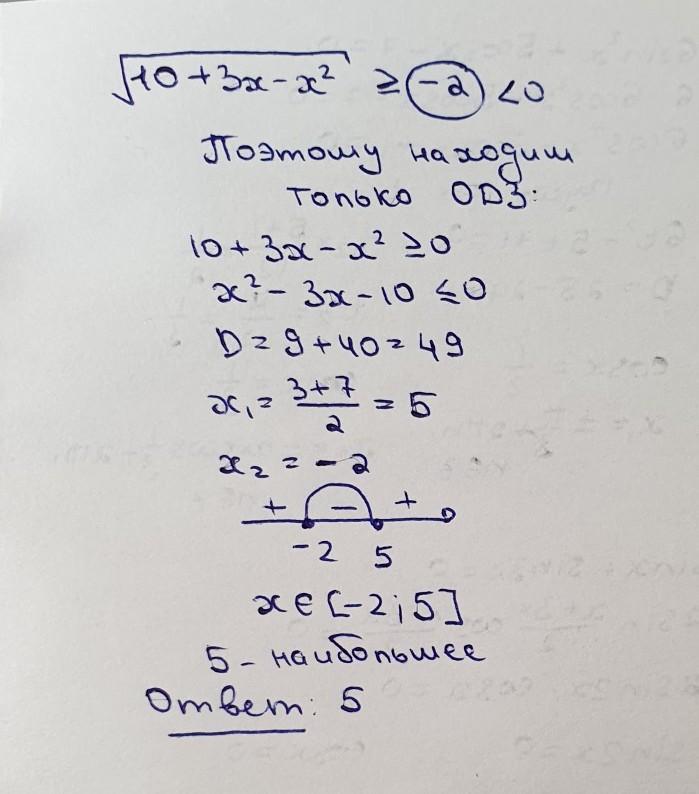 √(10+3x-x²) ≥ -2 <0
Поэтому находим
только ОДЗ:
10+3x-x² ≥0
x²-3x-10 ≤0
D=9+40=49
x₁=(3+7)/2=5
x₂=-2
+ - +
-2 5
x∈[-2;5]
5-наибольшее
Ответ: 5